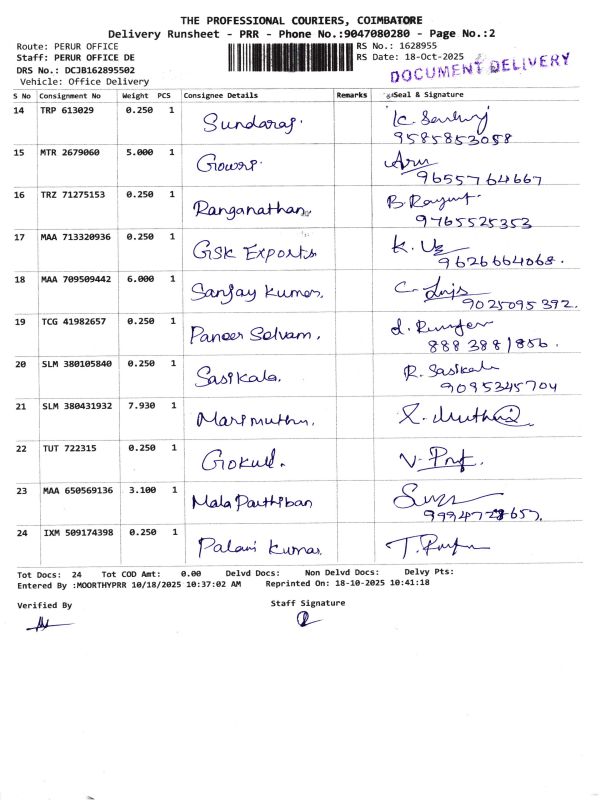 THE PROFESSIONAL COURIERS, COIMBATORE
Delivery Runsheet - PRR - Phone No.:9047080280 - Page No.:2
Route: PERUR OFFICE
RS No.: 1628955
Staff: PERUR OFFICE DE
RS Date: 18-Oct-2025
DRS No.: DCJB162895502
DOCUMENT DELIVERY
Vehicle: Office Delivery
S No Consignment No Weight PCS Consignee Details Remarks Seal & Signature
14 TRP 613029 0.250 1 Sundaraj.
9585853058
15 MTR 2679060 5.000 1 Gowri.
9655764667
16 TRZ 71275153 0.250 1 Ranganathan.
9765525353
17 MAA 713320936 0.250 1 GSK Exports
9626664068.
18 MAA 709509442 6.000 1 Sanjay kumar.
9025095392.
19 TCG 41982657 0.250 1 Paneer Selvam.
20 SLM 380105840 0.250 1 Sasikala. R. Sasikala
9095345704
21 SLM 380431932 7.930 1 Marimuthu.
22 TUT 722315 0.250 1 Gokul.
23 MAA 650569136 3.100 1 Mala Parthiban
24 IXM 509174398 0.250 1 Palani Kumar.
Tot Docs: 24 Tot COD Amt: 0.00 Delvd Docs: Non Delvd Docs: Delvy Pts:
Entered By :MOORTHYPRR 10/18/2025 10:37:02 AM Reprinted On: 18-10-2025 10:41:18
Verified By
Staff Signature